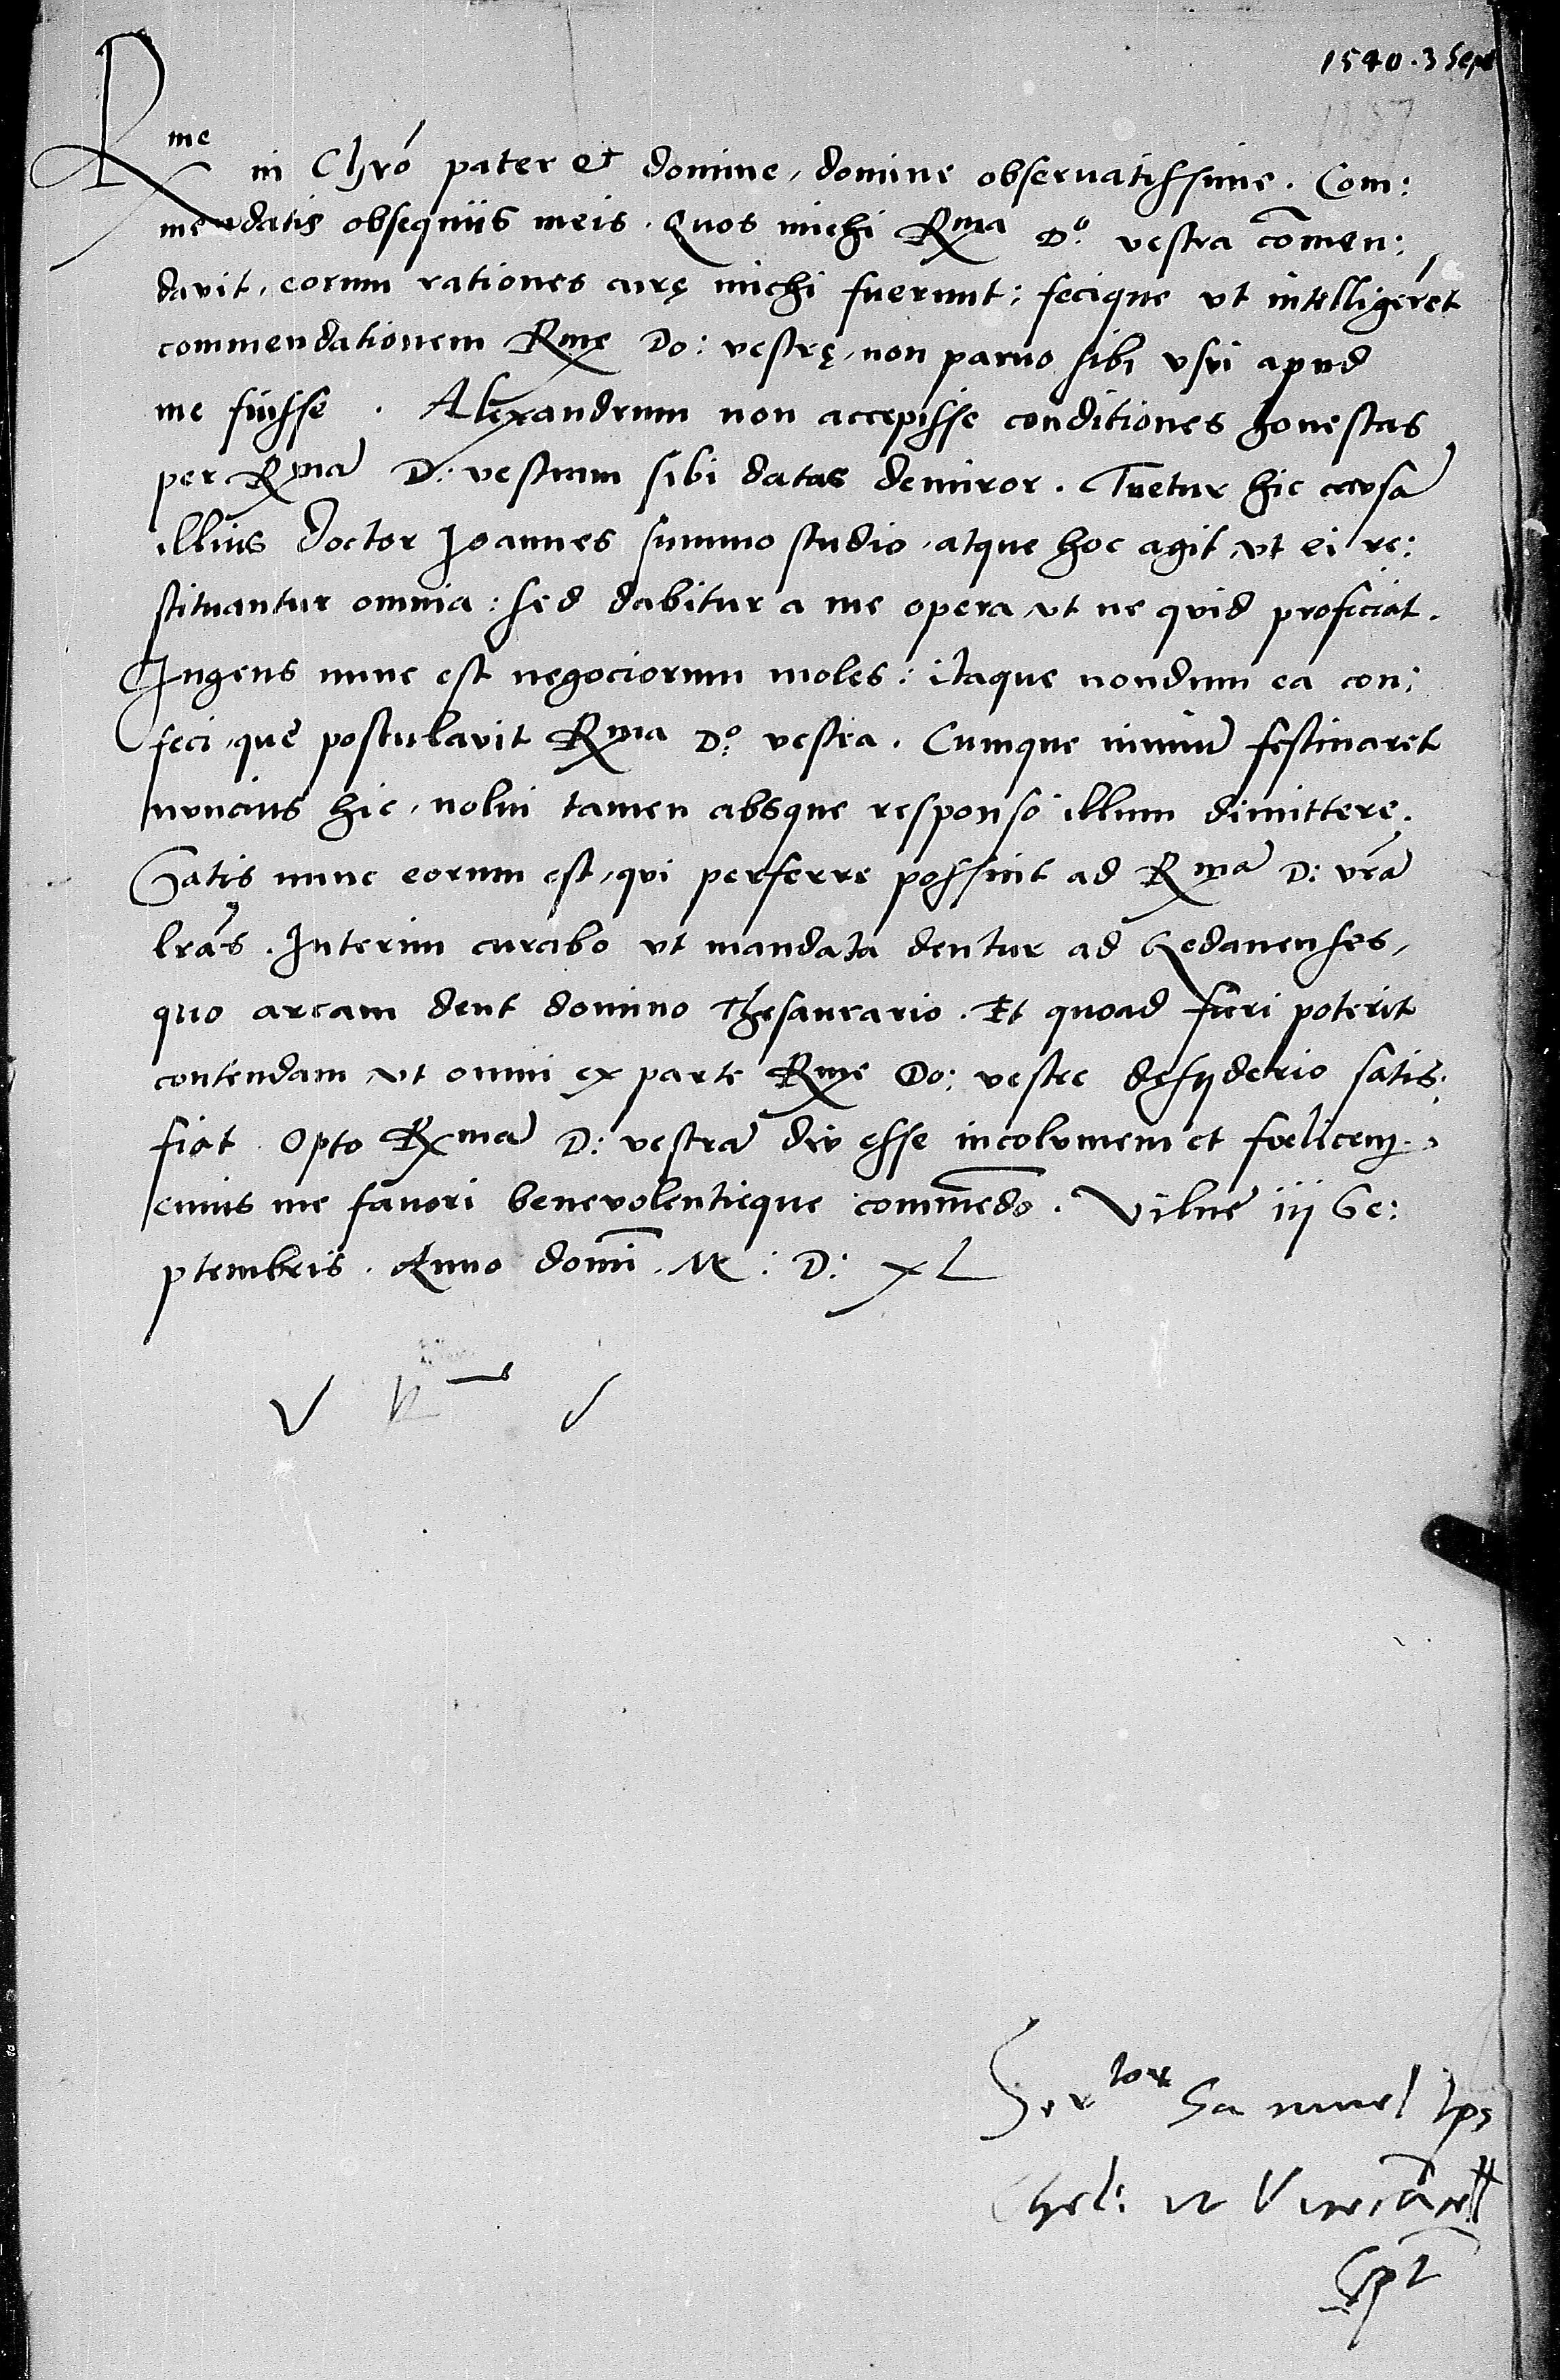 1540. 3 Sept
1257
Rme in Chro pater et domine, domine observatissime. Com:
mendatis obsequiis meis. Quos michi Rma Do: vestra comen:
davit, eorum rationes curę michi fuerunt: fecique ut intelligeret
commendationem Rme Do: vestrę, non parvo sibi usui apud
me fuisse. Alexandrum non accepisse conditiones honestas
per Rma D: vestram sibi datas demiror. Tuetur hic causa
illius doctor Joannes summo studio, atque hoc agit, ut ei re:
stituantur omnia: sed dabitur a me opera, ut ne quid proficiat.
Ingens nunc est negociorum moles: itaque nondum ea con:
feci, que postulavit Rma Do: vestra. Cumque nimiu festinaret
nuncius hic, nolui tamen absque responso illum dimittere.
Satis nunc eorum est, qui perferre possint ad Rma D: vra
lras. Interim curabo ut mandata dentur ad Gedanenses,
quo arcam dent domino Thesaurario. Et quoad fieri poterit
contendam, ut omni ex parte Rme Do: vestre desyderio satis:
fiat. Opto Rma D: vestra diu esse incolumem et foelicem.
cuius me favori benevolentieque commedo. Vilne iij Se:
ptembris. Anno domi. M: D: XL
V R
Servtor Samuel Eps
Chel: R Vicecancell
spt